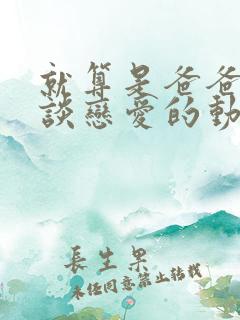 就算是爸爸
談戀愛的動
長生果
未經同意禁止轉載